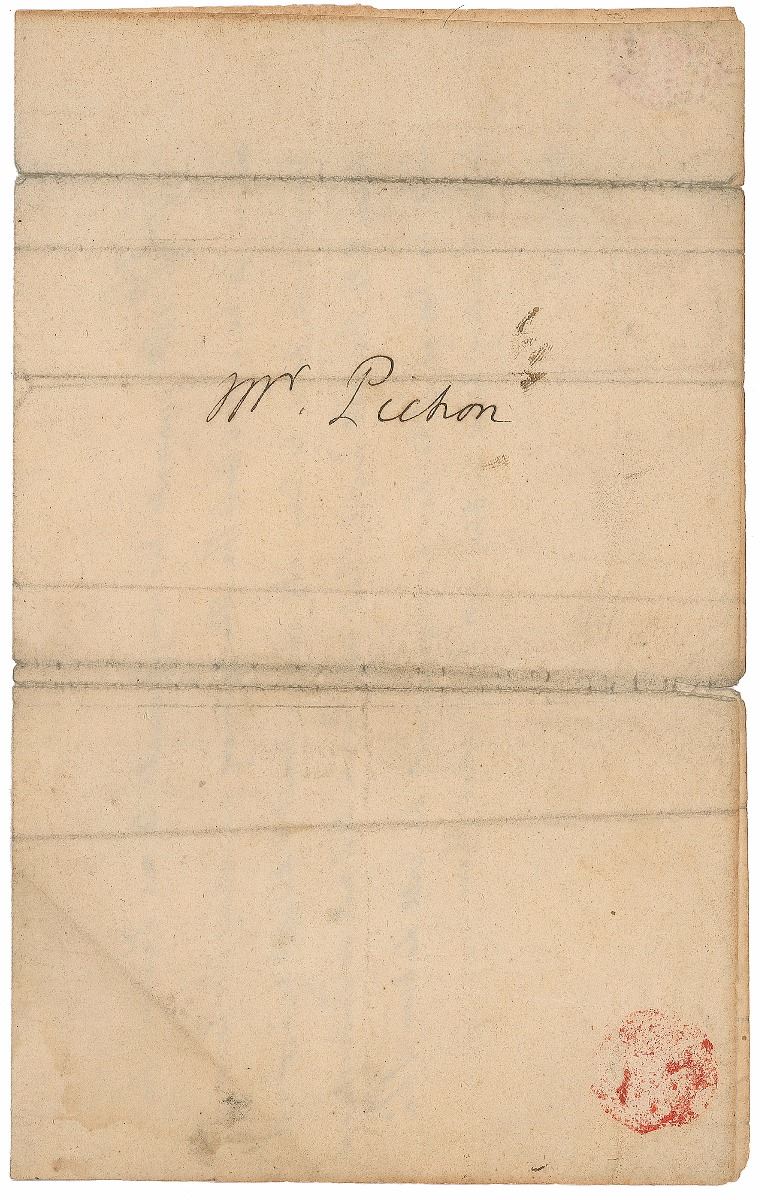 Mr. Pichon